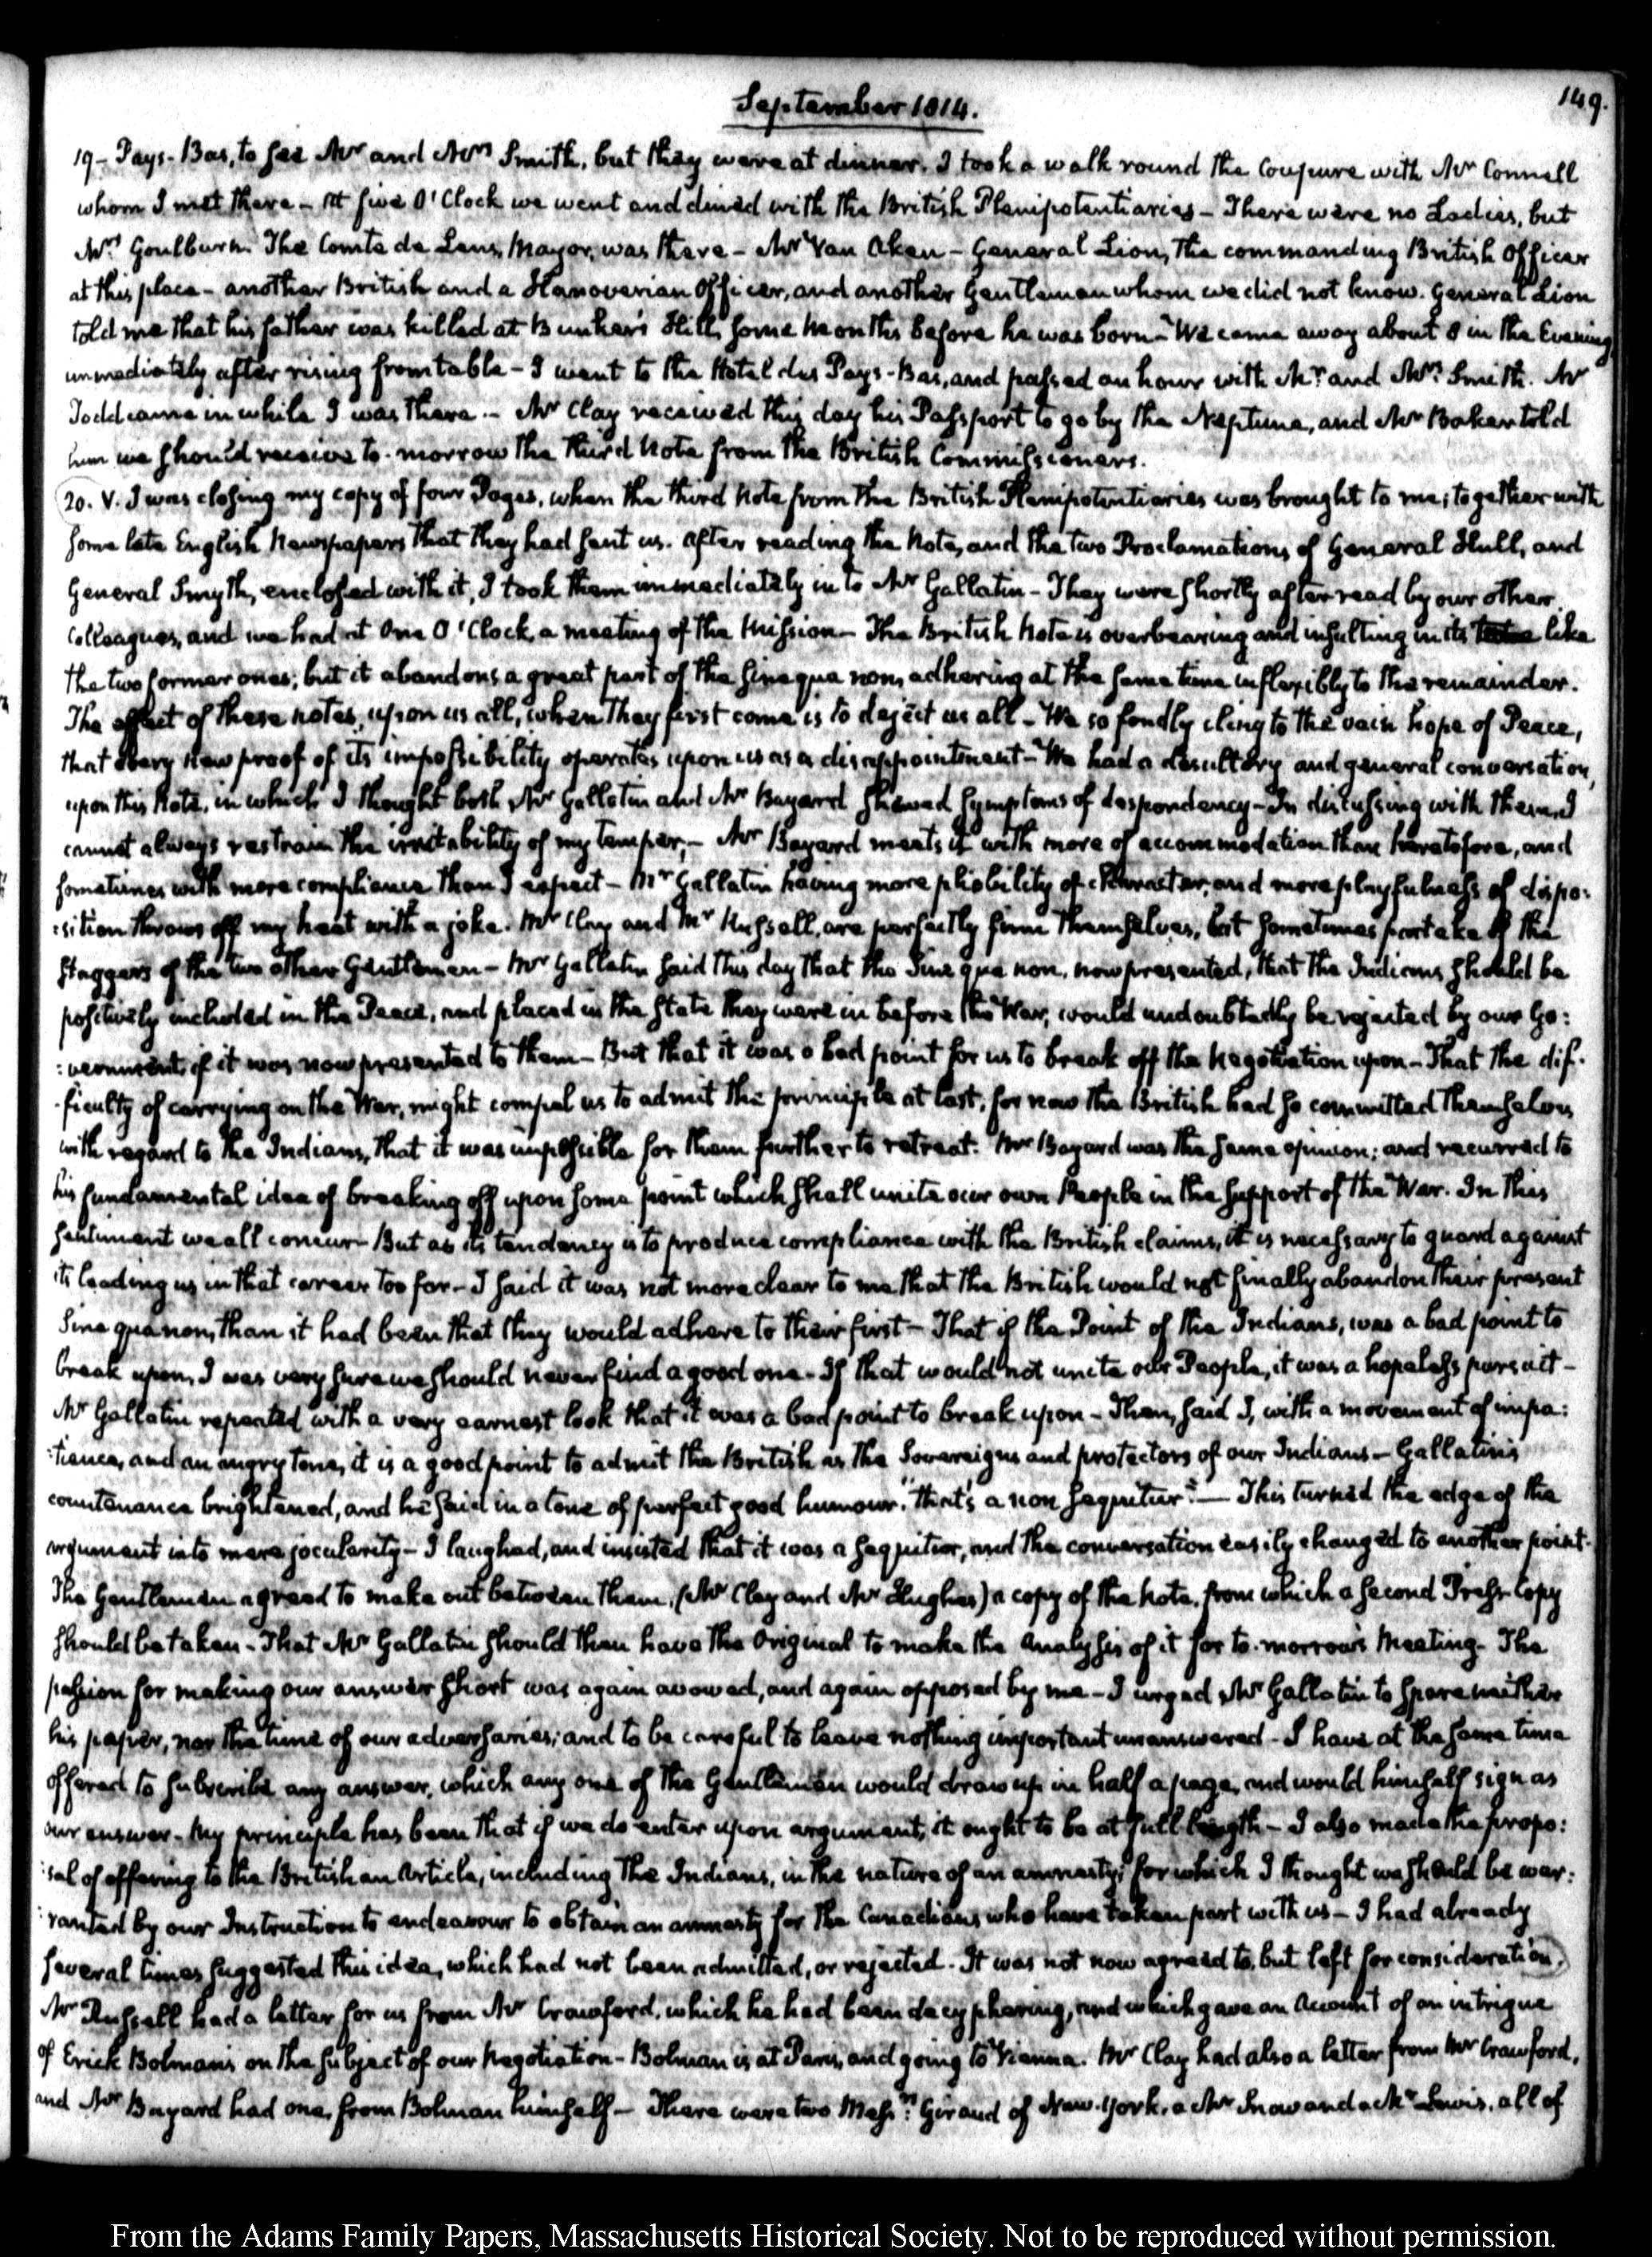 September 1814.
149.
19- Pays-Bas, to see Mr and Mrs Smith, but they were at dinner. I took a walk round the Coupure with Mr Connell
whom I met there - At five O'Clock we went and dined with the British Plenipotentiaries - There were no Ladies, but
Mrs Goulburn. The Comte de Lens, Mayor, was there - Mr Van Aken - General Lion, the commanding British Officer
at this place - another British and a Hanoverian Officer, and another Gentleman whom we did not know. General Lion
told me that his father was killed at Bunker's Hill, some months before he was born - We came away about 8 in the Evening
immediately after rising from table - I went to the Hotel des Pays-Bas, and passed an hour with Mr and Mrs Smith. Mr
Todd came in while I was there - Mr Clay received this day his Passport to go by the Neptune, and Mr Baker told
him we should receive to-morrow the third Note from the British Commissioners.
20. V. I was closing my copy of four Pages, when the third Note from the British Plenipotentiaries was brought to me; together with
some late English Newspapers that they had sent us. After reading the Note, and the two Proclamations of General Hull, and
General Smyth, enclosed with it, I took them immediately in to Mr Gallatin - They were shortly after read by our other
Colleagues, and we had at One O'Clock, a meeting of the Mission - The British Note is overbearing and insulting in its like
the two former ones; but it abandons a great part of the sine qua non, adhering at the same time inflexibly to the remainder.
The effect of these notes, upon us all, when they first come is to deject us all - We so fondly cling to the vain hope of Peace,
that every new proof of its impossibility operates upon us as a disappointment - We had a desultory and general conversation,
upon this Note, in which I thought both Mr Gallatin and Mr Bayard shewed symptoms of despondency - In discussing with them, I
cannot always restrain the irritability of my temper, - Mr Bayard meets it with more of accommodation than heretofore, and
sometimes with more compliance than I expect - Mr Gallatin having more pliability of character, and more playfulness of dispo:
:sition throws off my heat with a joke. Mr Clay and Mr Russell, are perfectly firm themselves, but sometimes partake of the
staggers of the two other Gentlemen - Mr Gallatin said this day that the Sine qua non, now presented, that the Indians should be
positively included in the Peace, and placed in the state they were in before the War, would undoubtedly be rejected by our Go:
:vernment, if it was now presented to them - But that it was a bad point for us to break off the Negotiation upon - That the dif-
-ficulty of carrying on the War, might compel us to admit the principle at last, for now the British had so committed themselves
with regard to the Indians, that it was impossible for them further to retreat. Mr Bayard was the same opinion; and recurred to
his fundamental idea of breaking off upon some point which shall unite our own People in the support of the War. In this
sentiment we all concur - But as its tendency is to produce compliance with the British claims, it is necessary to guard against
its leading us in that career too far - I said it was not more clear to me that the British would not finally abandon their present
Sine qua non, than it had been that they would adhere to their first - That if the Point of the Indians, was a bad point to
break upon, I was very sure we should never find a good one - If that would not unite our People, it was a hopeless pursuit -
Mr Gallatin repeated with a very earnest look that it was a bad point to break upon - Then, said I, with a movement of impa:
:tience, and an angry tone, it is a good point to admit the British as the Sovereigns and protectors of our Indians - Gallatin's
countenance brightened, and he said in a tone of perfect good humour, "that's a non sequitur" - This turned the edge of the
argument into mere jocularity - I laughed, and insisted that it was a sequitur, and the conversation easily changed to another point.
The Gentlemen agreed to make out between them, (Mr Clay and Mr Hughes) a copy of the Note, from which a second Press-Copy
should be taken - That Mr Gallatin should then have the Original to make the Analysis of it for to-morrow's Meeting - The
passion for making our answer short was again avowed, and again opposed by me - I urged Mr Gallatin to spare neither
his paper, nor the time of our adversaries; and to be careful to leave nothing important unanswered - I have at the same time
offered to subscribe any answer, which any one of the Gentlemen would draw up in half a page, and would himself sign as
our answer - My principle has been that if we do enter upon argument, it ought to be at full length - I also made the propo:
:sal of offering to the British an Article, including the Indians, in the nature of an amnesty; for which I thought we should be war:
:ranted by our Instruction to endeavour to obtain an amnesty for the Canadians who have taken part with us - I had already
several times suggested this idea, which had not been admitted, or rejected. It was not now agreed to, but left for consideration.
Mr Russell had a letter for us from Mr Crawford, which he had been decyphering, and which gave an Account of an intrigue
of Erick Bolman's on the subject of our Negotiation - Bolman is at Paris, and going to Vienna. Mr Clay had also a letter from Mr Crawford,
and Mr Bayard had one, from Bolman himself - There were two Messrs Giraud of New-York, a Mr Snow and a Mr Lewis, all of
From the Adams Family Papers, Massachusetts Historical Society. Not to be reproduced without permission.